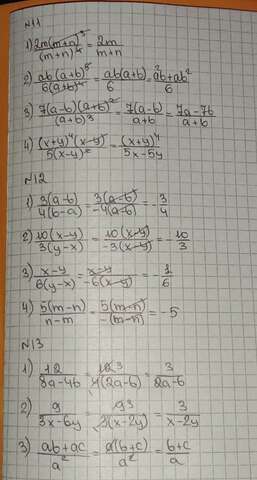 N11
1) 2m(m+n)³/(m+n)⁴ = 2m/(m+n)
2) ab(a+b)⁵/6(a+b)⁴ = ab(a+b)/6 = a²b+ab²/6
3) 7(a-b)(a+b)²/(a+b)³ = 7(a-b)/a+b = 7a-7b/a+b
4) (x+y)⁴(x-y)/5(x-y)² = (x+y)⁴/5x-5y
N12
1) 3(a-b)/4(b-a) = 3(a-b)/-4(a-b) = -3/4
2) 10(x-y)/3(y-x) = 10(x-y)/-3(x-y) = -10/3
3) x-y/6(y-x) = x-y/-6(x-y) = -1/6
4) 5(m-n)/n-m = 5(m-n)/-(m-n) = -5
N13
1) 12/8a-4b = 12 3/4(2a-b) = 3/2a-b
2) 9/3x-6y = 9 3/3(x-2y) = 3/x-2y
3) ab+ac/a² = a(b+c)/a² = b+c/a